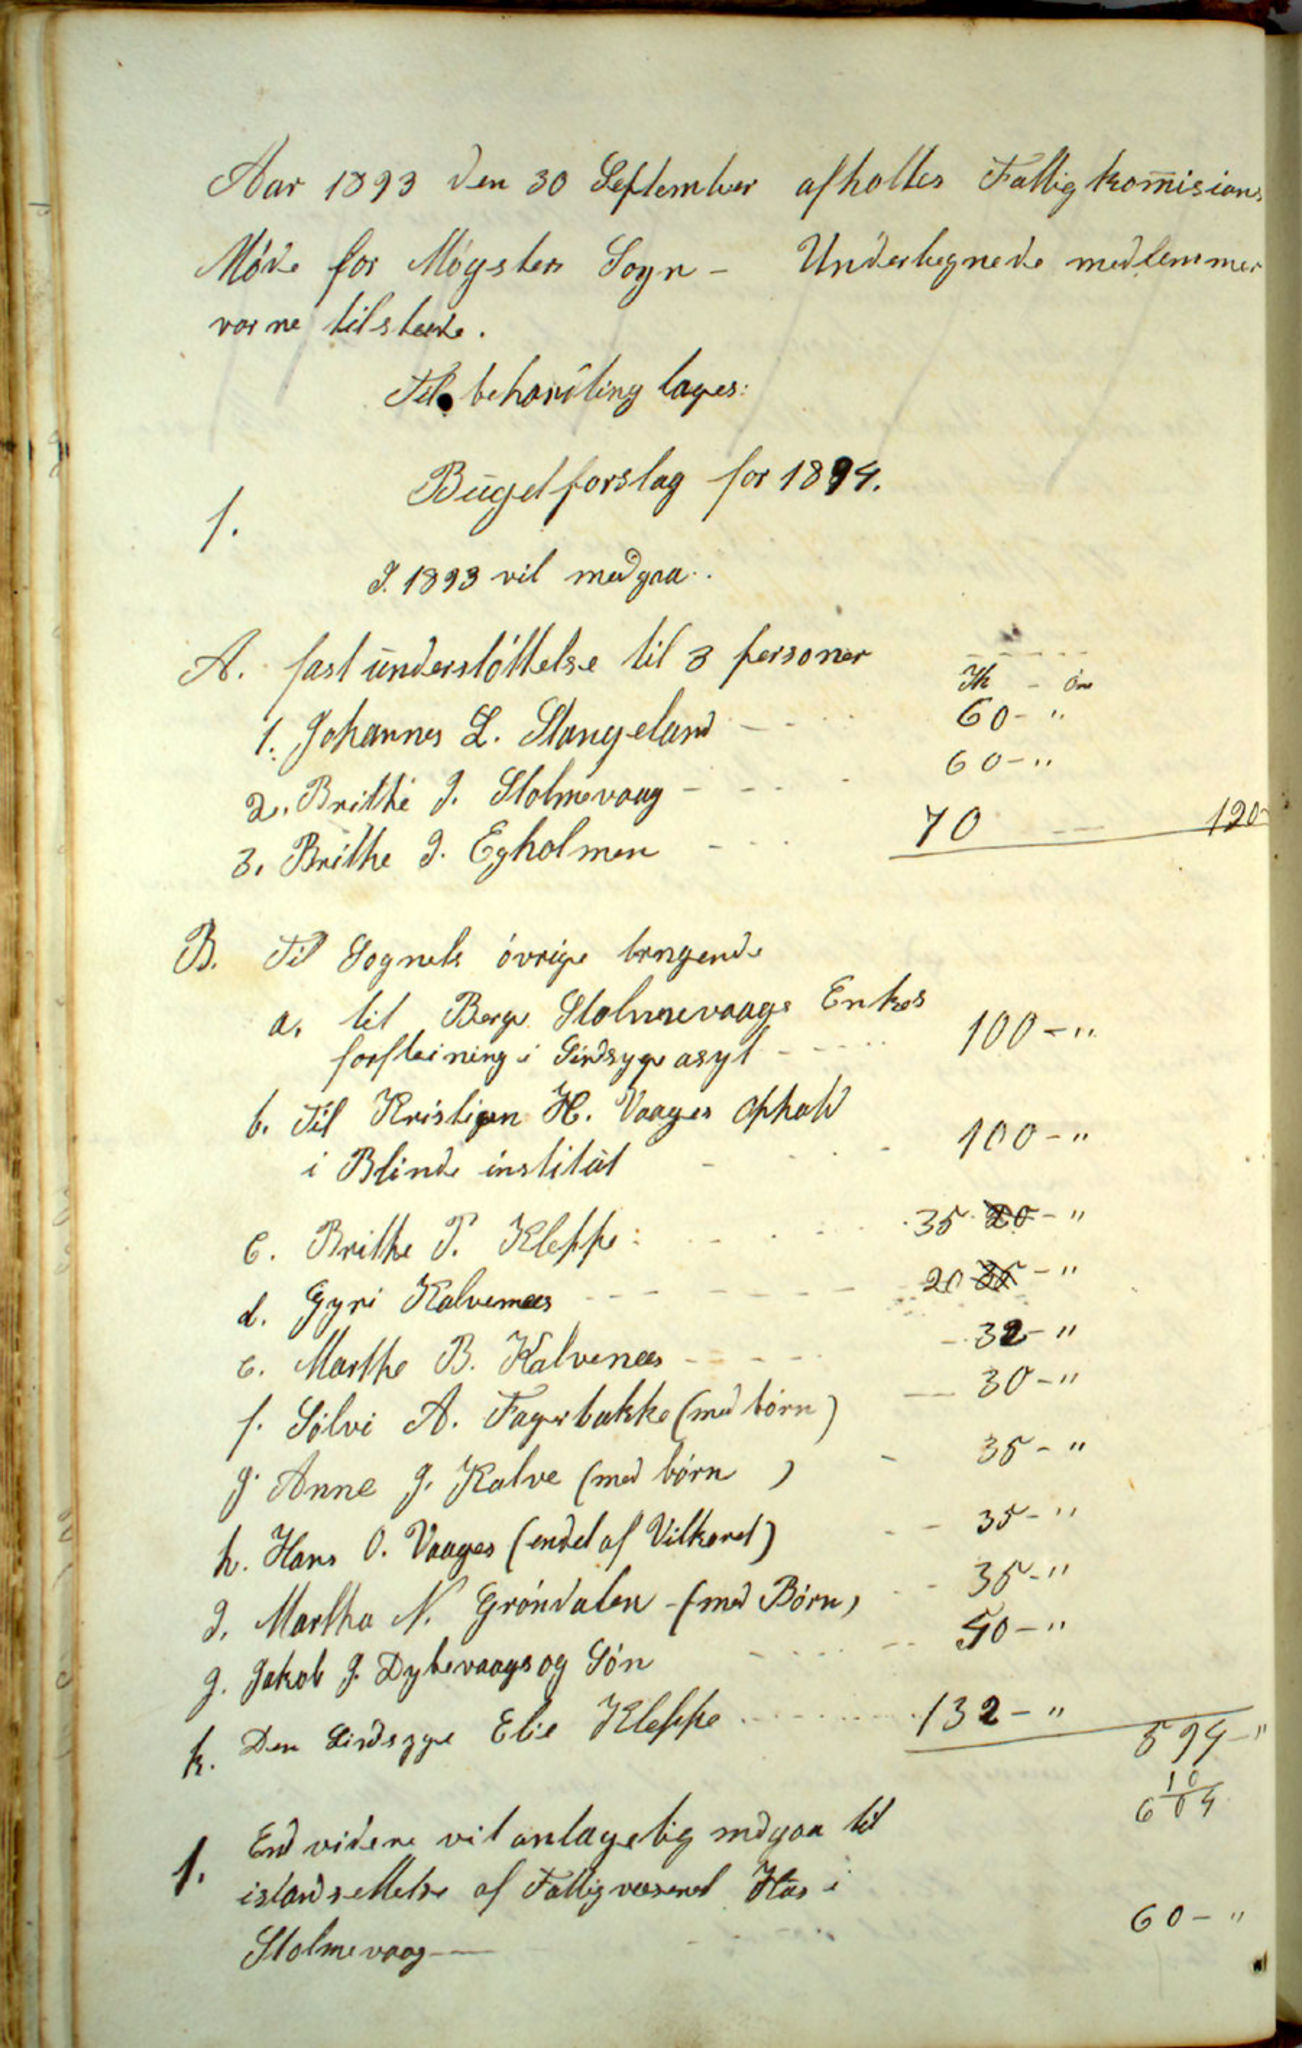 Aar 1893 den 30 September afholtes Fattigkom̅isions
Møde for Møgster Sogn – Undertegnede medlemmer
varne tilstæde.
Til behandling toges:
1. Bugetforslag for 1894.
I 1893 vil medgaa.
A. fast understøttelse til 3 personer
Kr - Øre
1. Johannes L. Stangeland - - - 60 - "
2. Brithe J. Stolmevaag - - - 60 - "
3. Brithe J. Egholmen - - - 70 --- 190
B. Til Sognets øvrige trængende
a. til Berge Stolmevaags Enkes
forpleining i Sindsyge asyl - - - 100 - "
b. Til Kristian H. Vaages ophold
i Blinde institut - - - 100 - "
c. Brithe P. Kleppe: - - - 35 20 - "
d. Gyri Kalvenæs - - - 20 35 - "
e. Marthe B. Kalvenæs - - - 32 - "
f. Sølvi A. Fagerbakke (med børn) - 30 - "
g. Anne J. Kalve (med børn ) - 35 - "
h. Hans O. Vaages (endel af Vilkoret) - - 35 - "
I. Martha N. Grøndalen - (med Børn) - - 35 - "
J. Jakob J. Dybevaags og Søn - - - 50 - "
k. Den Sindsyge Elie Kleppe - - - 132 - " 594 - "
10
604
1. End videre vil antagelig mdgaa til
istandsettelse af Fattigvæsenet Hus i
Stolmevaag — 60 - "